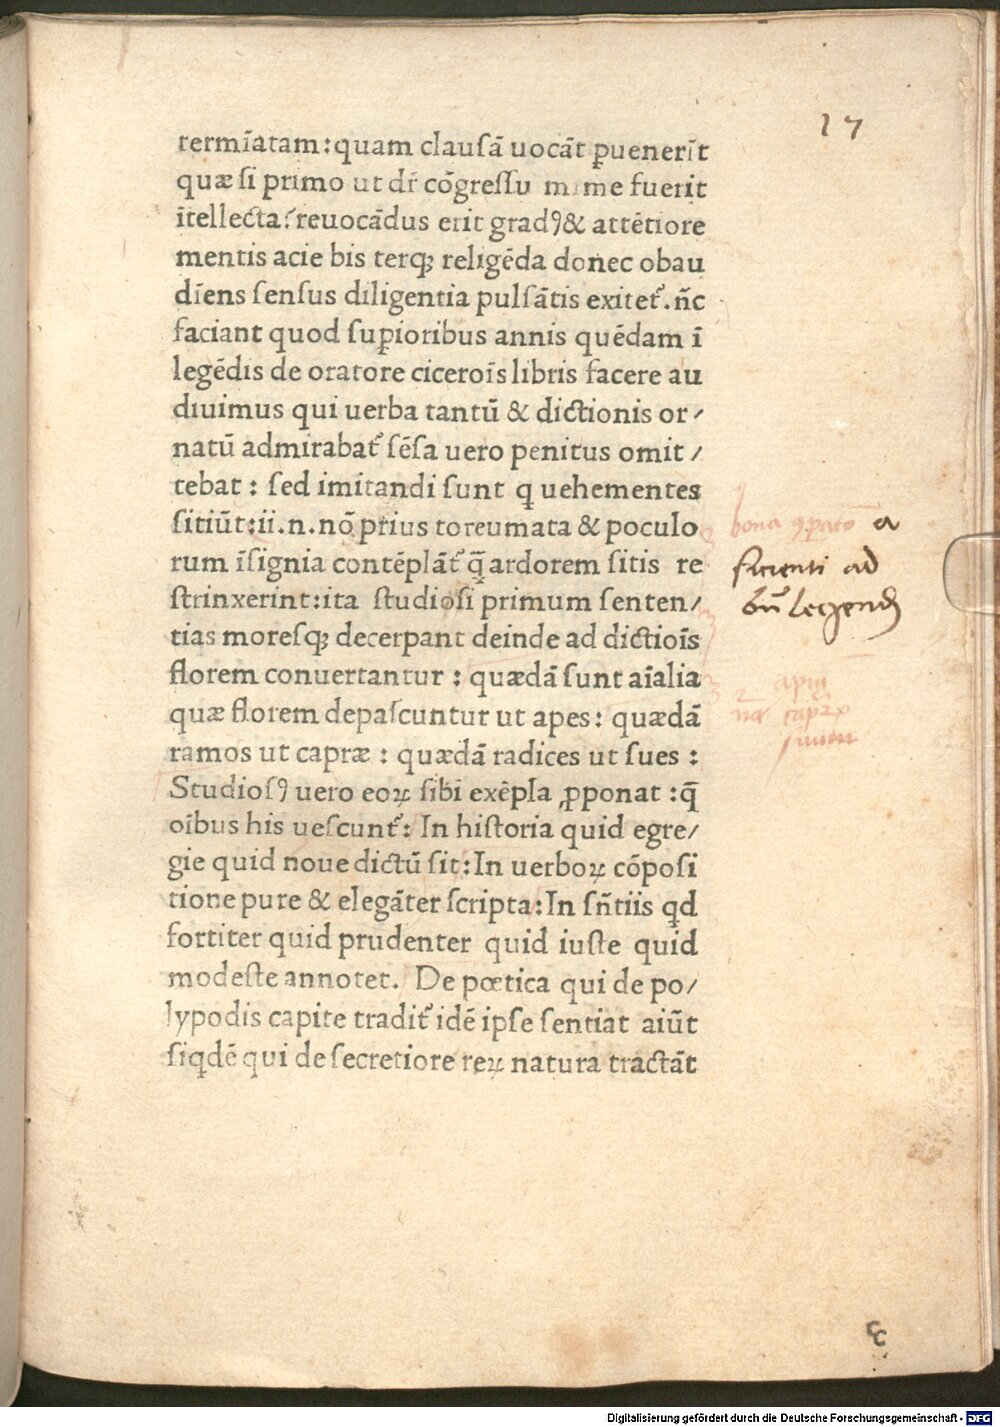 17
termīatam:quam clausā uocāt ꝑuenerīt
quæ si primo ut dr̄ cōgressu mīme fuerit
ītellecta:reuocādus erit gradꝰ& attētiore
mentis acie bis terqꝫ religēda donec obau
dīens sensus diligentia pulsātis exitet᷑.ñc
faciant quod suꝑioribus annis quēdam ī
legēdis de oratore ciceroīs libris facere au
diuimus qui uerba tantū & dictionis or⸗
natū admirabat᷑ sēsa uero penitus omit⸗
tebat : sed imitandi sunt q uehementes
sitiūt:ii.n.nō prius toreumata & poculo
rum īsignia contēplāt᷑ q̄ ardorem sitis re
strinxerint:ita studiosi primum senten⸗
tias moresqꝫ decerpant deinde ad dictioīs
florem conuertantur : quædā sunt aīalia
quæ florem depascuntur ut apes: quædā
ramos ut capræ : quædā radices ut sues :
Studiosꝰ uero eoꝝ sibi exēpla ꝓponat :q̄
oībus his uescunt᷑: In historia quid egre⸗
gie quid noue dictū sit:In uerboꝝ cōposi
tione pure & elegāter scripta:In sñtiis qd
fortiter quid prudenter quid iuste quid
modeste annotet. De poetica qui de po⸗
lypodis capite tradit᷑ idē ipse sentiat aiūt
siqdē qui de secretiore reꝝ natura tractāt
bona ꝯꝑatō a
sicienti ad
bn̄ legendū
apiū
caprꝝ
cc
Digitalisierung gefördert durch die Deutsche Forschungsgemeinschaft - DFG